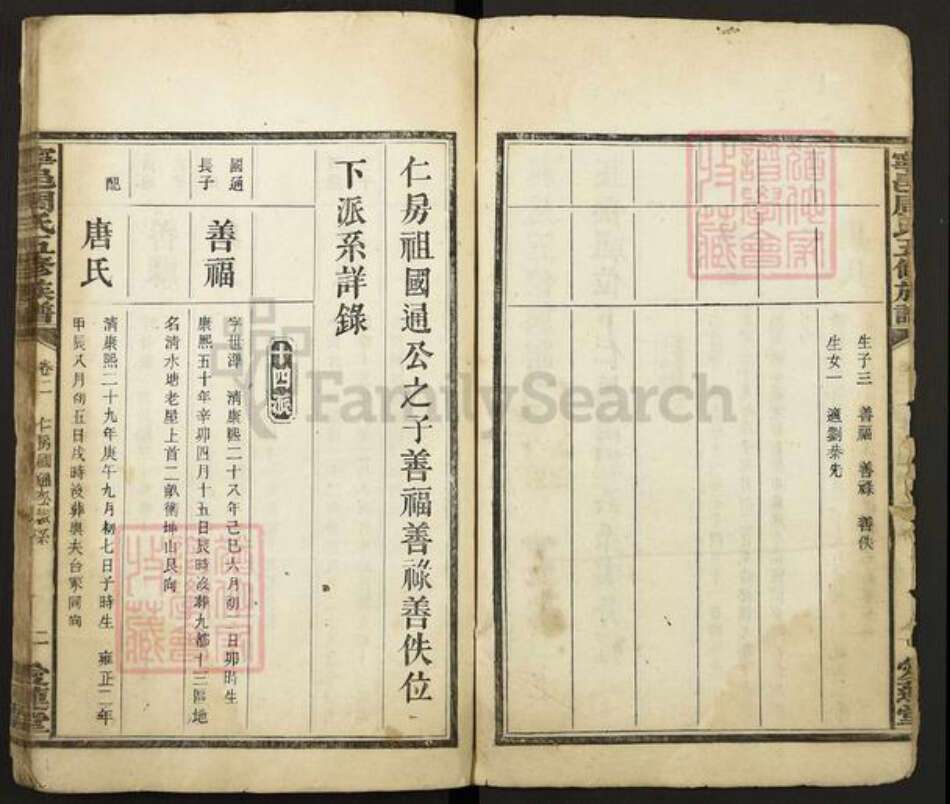 寧邑周氏五修族譜
愛蓮堂
生子三 善福 善祿 善佚
生女一 適劉恭先
仁房祖國通公之子善福善祿善佚位
下派系詳錄
十四派
國通
長子
善福
字世澤 清康熙二十八年己巳六月初一日卯時生
康熙五十年辛卯四月十五日辰時沒葬九都十三區地
名清水塘老屋上首二畝衝坤山艮向
配
唐氏
清康熙二十九年庚午九月初七日子時生 雍正二年
甲辰八月初五日戌時沒葬與夫合冢同向
寧邑周氏五修族譜
卷二
仁房國通公派系
二
愛蓮堂
FamilySearch